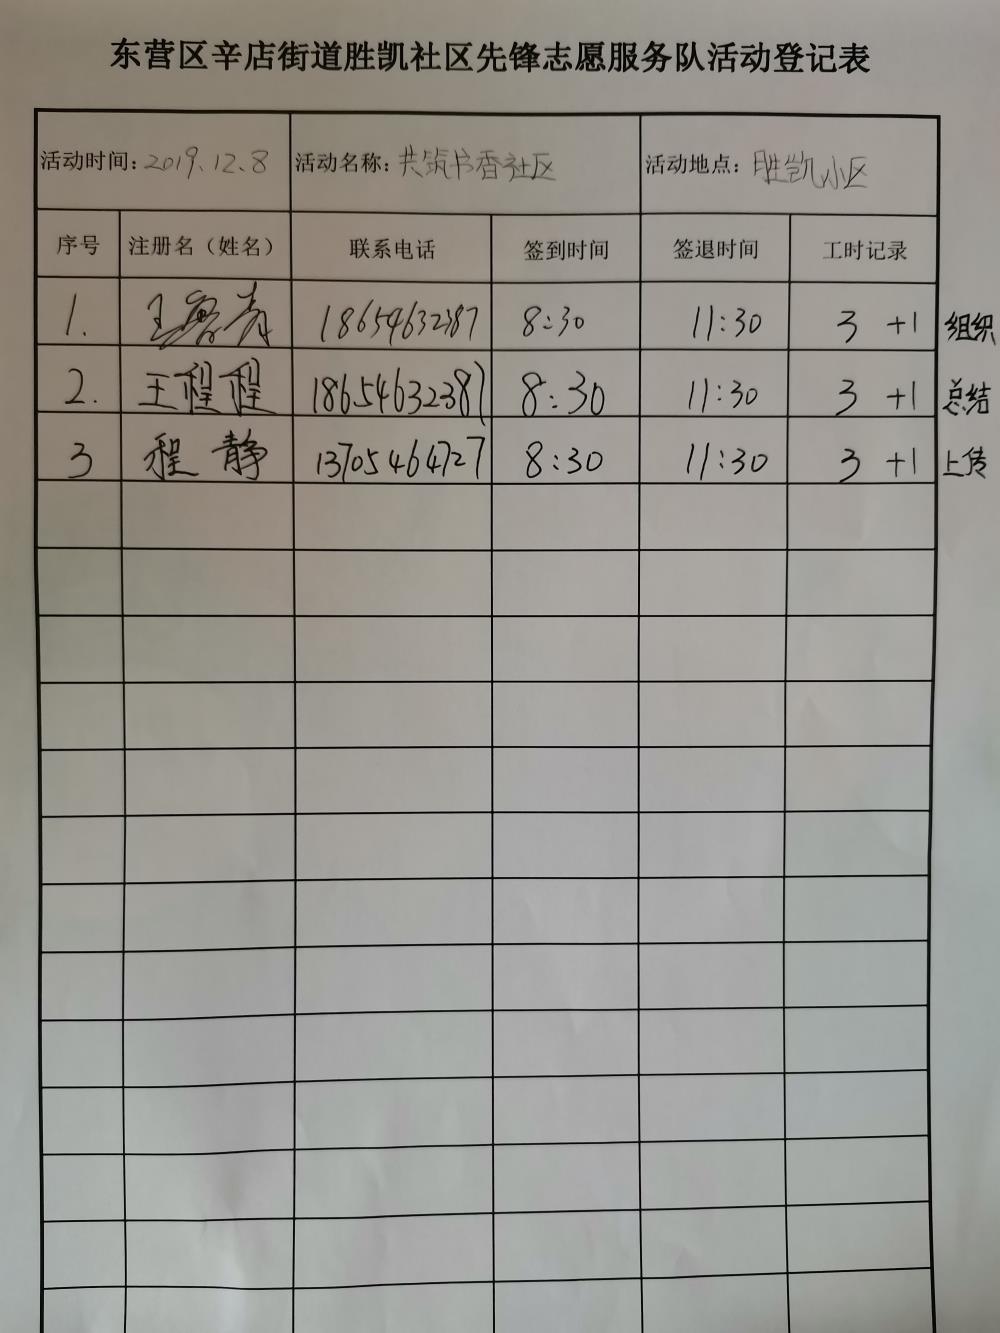 东营区辛店街道胜凯社区先锋志愿服务队活动登记表
活动时间：2019.12.8 活动名称：共筑书香社区 活动地点：胜凯小区
序号 注册名（姓名） 联系电话 签到时间 签退时间 工时记录
1. 王 18654632387 8:30 11:30 3 +1 组织
2. 王程程 18654632387 8:30 11:30 3 +1 总结
3 程静 13705464727 8:30 11:30 3 +1 上传